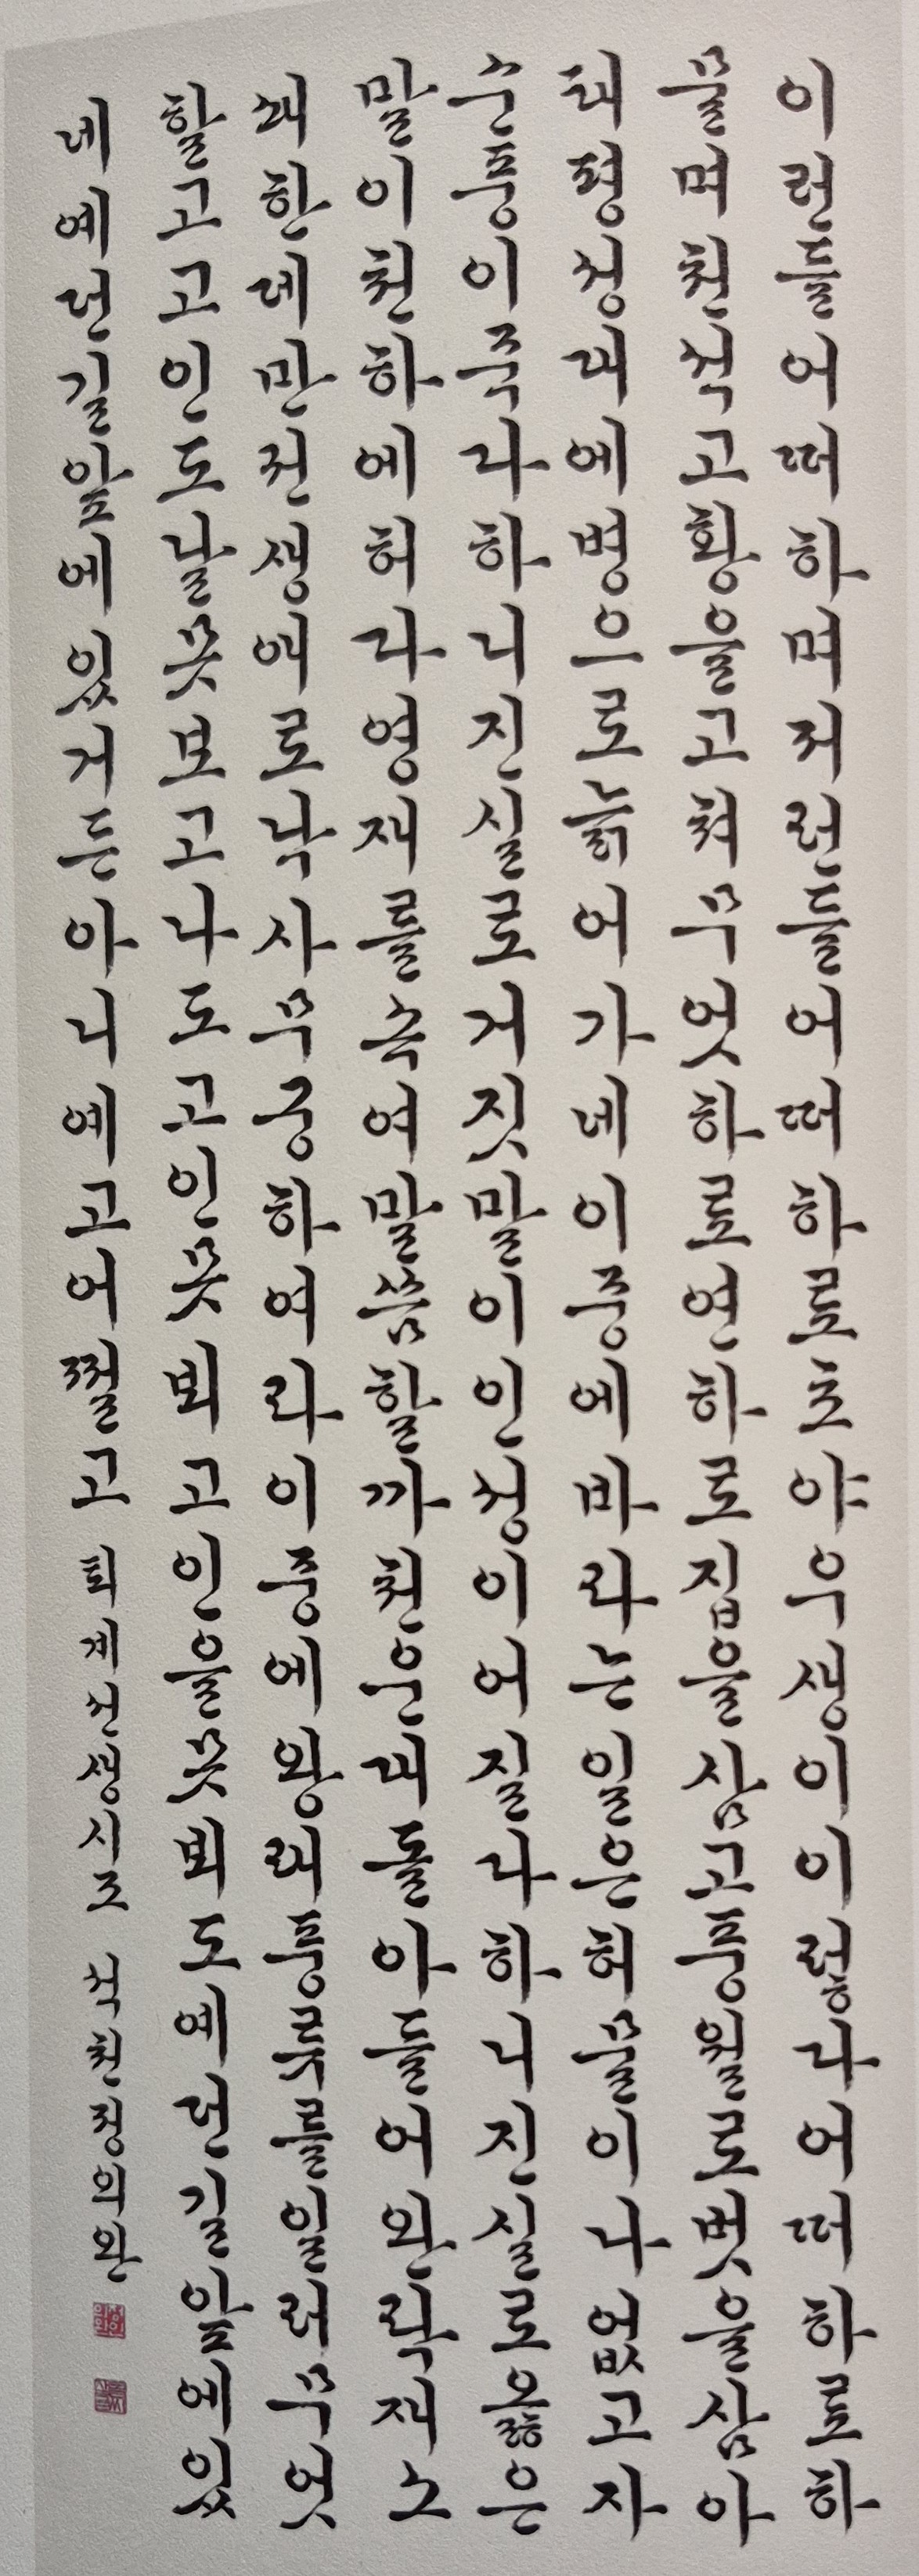 이런들어떠하며저런들어떠하료초야우생이이렇다어떠하료하
물며천석고황을고쳐무엇하료연하로집을삼고풍월로벗을삼아
태평성대에병으로늙어가네이중에바라는일은허물이나없고자
순풍이죽다하니진실로거짓말이인성이어질다하니진실로옳은
말이천하에허다영재를속여말씀할까천운대돌아들어완락재소
쇄한데만권생애로낙사무궁하여라이중에왕래풍류를일러무엇
할고고인도날못보고나도고인못뵈고인을못뵈도예던길앞에있
네예던길앞에있거든아니예고어쩔고 퇴계선생시조 석천정의완